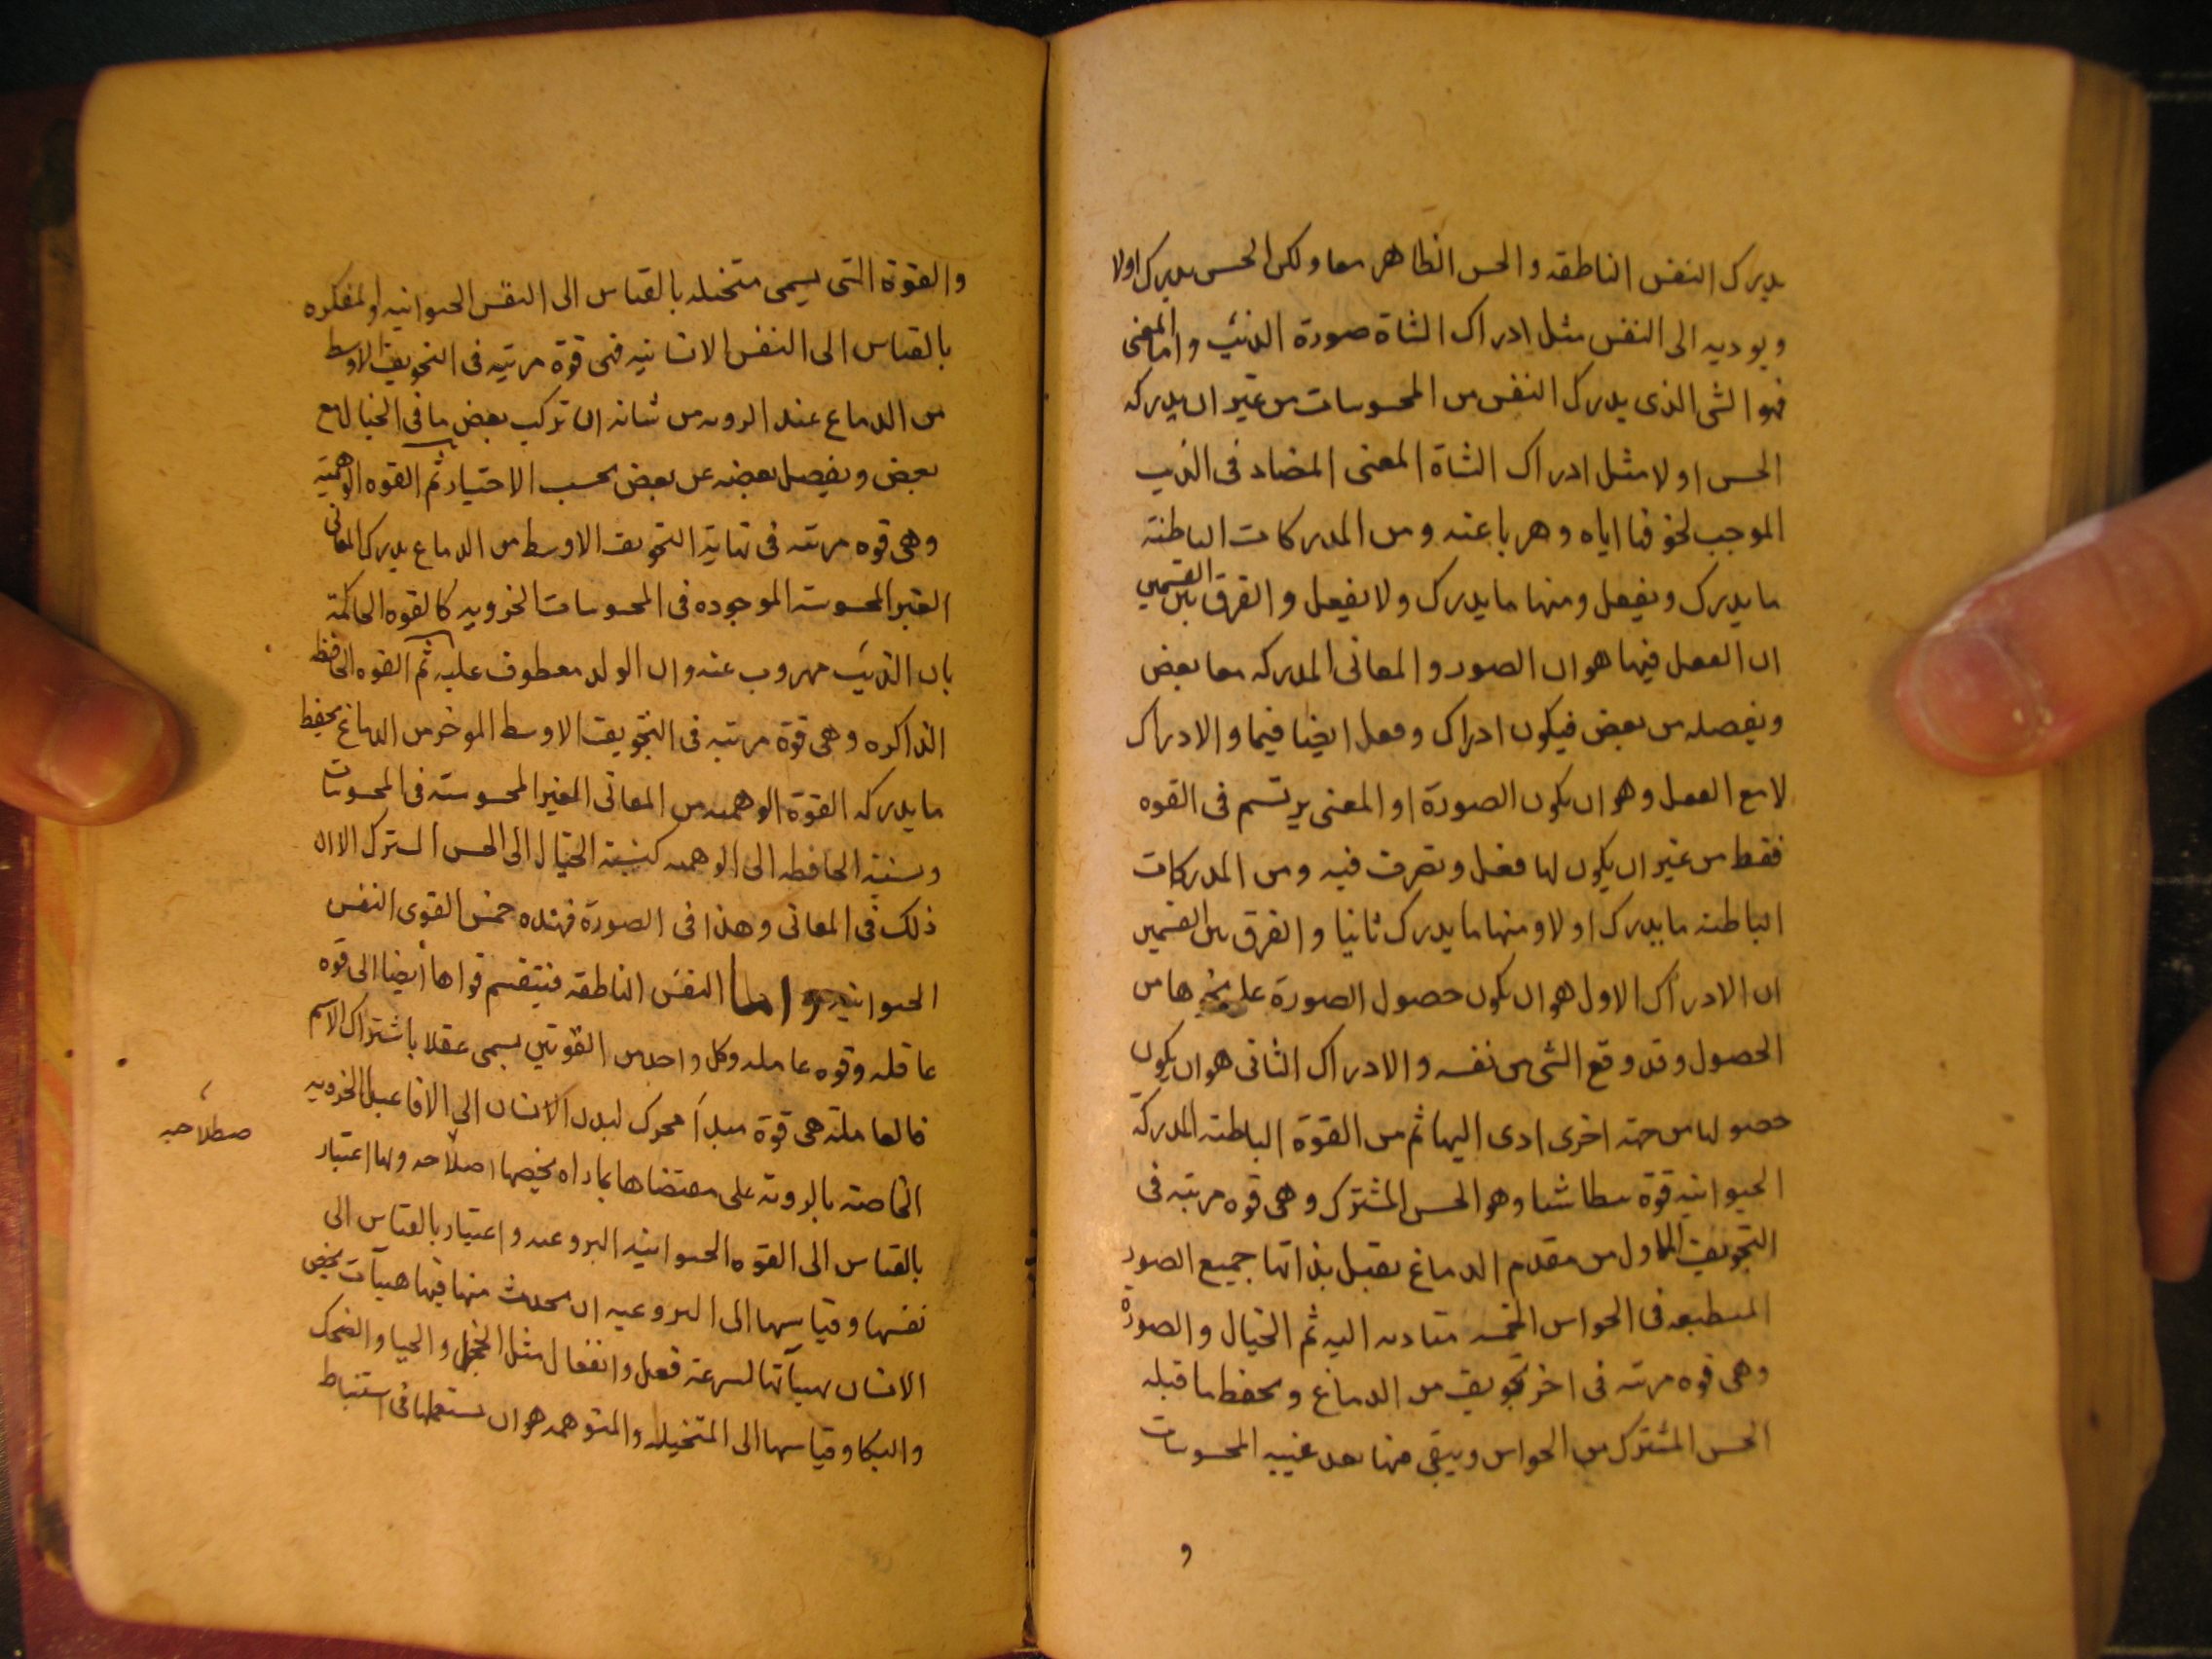 يدرك النفس الناطقه والحس الظاهر معا ولكن الحس يدرك اولا
ويوديه الى النفس مثل ادراك الشاة صورة الذئب واما المعنى
فهو الشى الذى يدرك النفس من المحسوسات من غير ان يدركه
الحس اولا مثل ادراك الشاة المعنى المضاد فى الذيب
الموجب لخوفنا اياه وهربا عنه ومن المدركات الباطنة
ما يدرك ويفعل ومنها ما يدرك ولا يفعل والفرق بين القسمين
ان الفعل فيها هو ان الصور والمعانى المدركه معا بعض
ويفصله من بعض فيكون ادراك وفعل ايضا فيما والادراك
لا مع الفعل وهو ان يكون الصورة او المعنى يرتسم فى القوه
فقط من غير ان يكون لها فعل وتصرف فيه ومن المدركات
الباطنه ما يدرك اولا ومنها ما يدرك ثانيا والفرق بين القسمين
ان الادراك الاول هو ان يكون حصول الصورة على نحو ها من
الحصول وقد وقع الشى من نفسه والادراك الثانى هو ان يكون
حصولها من جهة اخرى ادى اليها ثم من القوة الباطنة المدركة
الحيوانيه قوة بنطاسيا وهو الحس المشترك وهى قوه مرتبه فى
التجويف الاول من مقدم الدماغ يقبل بذاتها جميع الصور
المنطبعه فى الحواس الخمسه متاديه اليه ثم الخيال والصورة
وهى قوه مرتبه فى اخر تجويف من الدماغ ويحفظ ما قبله
الحس المشترك من الحواس ويبقى منها بعد غيبه المحسوسات
و
والقوة التى يسمى متخيله بالقياس الى النفس الحيوانيه او لمفكره
بالقياس الى النفس الانسانيه فهى قوة مرتبه فى التجويف الاوسط
من الدماغ عند الدوده من شانه ان تركب بعض ما فى الخيال مع
بعض ويفصل بعضه عن بعض بحسب الاختيار ثم القوه الوهمية
وهى قوه مرتبه فى نهاية التجويف الاوسط من الدماغ يدرك المعانى
الغير المحسوسة الموجوده فى المحسوسات الجزويه كالقوه الحاكمة
بان الذئب مهروب عنه وان الولد معطوف عليه ثم القوه الحافظه
الذاكره وهى قوة مرتبه فى التجويف الاوسط الموخر من الدماغ يحفظ
ما يدركه القوة الوهميه من المعانى الغير المحسوسة فى المحسوسات
ونسبة الحافظه الى الوهميه كنسبة الخيال الى الحس المشترك الا ان
ذلك فى المعانى وهذا فى الصورة فهذه خمس القوى النفس
الحيوانيه واما النفس الناطقه فينقسم قواها أيضا الى قوه
عاقله وقوه عامله وكل واحد من القوتين يسمى عقلا باشتراك الاسم
فالعاملة هى قوة مبدأ محرك لبدن الانسان الى الافاعيل الجزويه
الخاصة بالروية على مقتضاها بما راه يخصها اصلاحيه ولها اعتبار
صطلاحيه
بالقياس الى القوه الحيوانيه النزوعيه واعتبار بالقياس الى
نفسها وقياسها الى النزوعيه ان يحدث منها فيها هيآت يخص
الانسان بهيآتها لسرعة فعل وانفعال مثل الخجل والحيا والضحك
والبكا وقياسها الى المتخيله والمتوهمه هو ان يستعملها فى استنباط